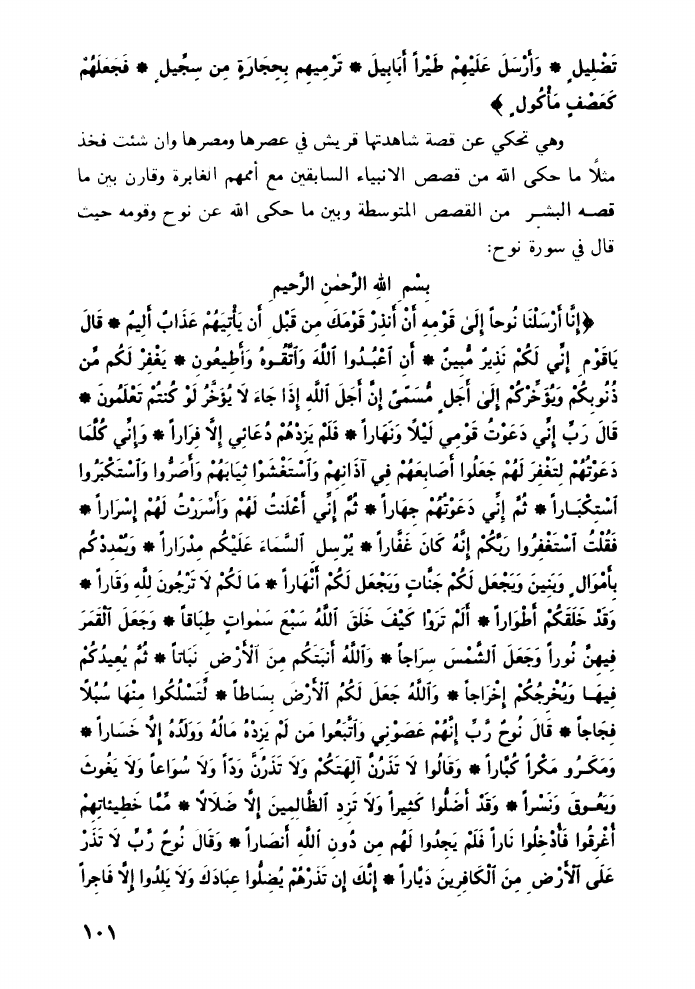 تَضْلِيلٍ * وَأَرْسَلَ عَلَيْهِمْ طَيْراً أَبَابِيلَ * تَرْمِيهِم بِحِجَارَةٍ مِن سِجِّيلٍ * فَجَعَلَهُمْ
كَعَصْفٍ مَأْكُولٍ ﴾
وهي تحكي عن قصة شاهدتها قريش في عصرها ومصرها وان شئت فخذ
مثلًا ما حكى الله من قصص الانبياء السابقين مع أممهم الغابرة وقارن بين ما
قصه البشر من القصص المتوسطة وبين ما حكى الله عن نوح وقومه حيث
قال في سورة نوح:
بِسْمِ اللهِ الرَّحْمٰنِ الرَّحِيمِ
﴿إِنَّا أَرْسَلْنَا نُوحاً إِلَىٰ قَوْمِهِ أَنْ أَنذِرْ قَوْمَكَ مِن قَبْلِ أَن يَأْتِيَهُمْ عَذَابٌ أَلِيمٌ * قَالَ
يَاقَوْمِ إِنِّي لَكُمْ نَذِيرٌ مُّبِينٌ * أَنِ ٱعْبُدُوا ٱللَّهَ وَٱتَّقُوهُ وَأَطِيعُونِ * يَغْفِرْ لَكُم مِّن
ذُنُوبِكُمْ وَيُؤَخِّرْكُمْ إِلَىٰ أَجَلٍ مُّسَمّىً إِنَّ أَجَلَ ٱللَّهِ إِذَا جَاءَ لَا يُؤَخَّرُ لَوْ كُنتُمْ تَعْلَمُونَ *
قَالَ رَبِّ إِنِّي دَعَوْتُ قَوْمِي لَيْلًا وَنَهَاراً * فَلَمْ يَزِدْهُمْ دُعَائِي إِلَّا فِرَاراً * وَإِنِّي كُلَّمَا
دَعَوْتُهُمْ لِتَغْفِرَ لَهُمْ جَعَلُوا أَصَابِعَهُمْ فِي آذَانِهِمْ وَٱسْتَغْشَوْا ثِيَابَهُمْ وَأَصَرُّوا وَٱسْتَكْبَرُوا
ٱسْتِكْبَاراً * ثُمَّ إِنِّي دَعَوْتُهُمْ جِهَاراً * ثُمَّ إِنِّي أَعْلَنتُ لَهُمْ وَأَسْرَرْتُ لَهُمْ إِسْرَاراً *
فَقُلْتُ ٱسْتَغْفِرُوا رَبَّكُمْ إِنَّهُ كَانَ غَفَّاراً * يُرْسِلِ السَّمَاءَ عَلَيْكُم مِدْرَاراً * وَيُمْدِدْكُم
بِأَمْوَالٍ وَبَنِينَ وَيَجْعَل لَكُمْ جَنَّاتٍ وَيَجْعَل لَكُمْ أَنْهَاراً * مَا لَكُمْ لَا تَرْجُونَ لِلَّهِ وَقَاراً *
وَقَدْ خَلَقَكُمْ أَطْوَاراً * أَلَمْ تَرَوْا كَيْفَ خَلَقَ ٱللَّهُ سَبْعَ سَمٰوَاتٍ طِبَاقاً * وَجَعَلَ ٱلْقَمَرَ
فِيهِنَّ نُوراً وَجَعَلَ ٱلشَّمْسَ سِرَاجاً * وَٱللَّهُ أَنبَتَكُم مِنَ ٱلْأَرْضِ نَبَاتاً * ثُمَّ يُعِيدُكُمْ
فِيهَا وَيُخْرِجُكُمْ إِخْرَاجاً * وَٱللَّهُ جَعَلَ لَكُمُ ٱلْأَرْضَ بِسَاطاً * لِّتَسْلُكُوا مِنْهَا سُبُلًا
فِجَاجاً * قَالَ نُوحٌ رَّبِّ إِنَّهُمْ عَصَوْنِي وَٱتَّبَعُوا مَن لَمْ يَزِدْهُ مَالُهُ وَوَلَدُهُ إِلَّا خَسَاراً *
وَمَكَرُو مَكْراً كُبَّاراً * وَقَالُوا لَا تَذَرُنَّ آلِهَتَكُمْ وَلَا تَذَرُنَّ وَدّاً وَلَا سُوَاعاً وَلَا يَغُوثَ
وَيَعُوقَ وَنَسْراً * وَقَدْ أَضَلُّوا كَثِيراً وَلَا تَزِدِ الظَّالِمِينَ إِلَّا ضَلَالًا * مِّمَّا خَطِيئَاتِهِمْ
أُغْرِقُوا فَأُدْخِلُوا نَاراً فَلَمْ يَجِدُوا لَهُم مِن دُونِ ٱللَّهِ أَنصَاراً * وَقَالَ نُوحٌ رَّبِّ لَا تَذَرْ
عَلَى ٱلْأَرْضِ مِنَ ٱلْكَافِرِينَ دَيَّاراً * إِنَّكَ إِن تَذَرْهُمْ يُضِلُّوا عِبَادَكَ وَلَا يَلِدُوا إِلَّا فَاجِراً
١٠١